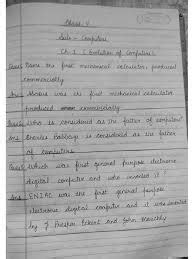 Class - V
Sub - Computer
Ch-1 (Evolution of Computer)
Ques1 Name the first mechanical calculator, produced
commercially
Ans was the first mechanical calculator
produced commercially
Ques Who is considered as the father of computer?
Ans Charles Babbage is considered as the father
of computers
Ques Which was first general purpose electronic
digital computer and who invented it?
Ans ENIAC was the first general purpose
electronic digital computer and it was invented
by J Presper Eckert and John Mauchly